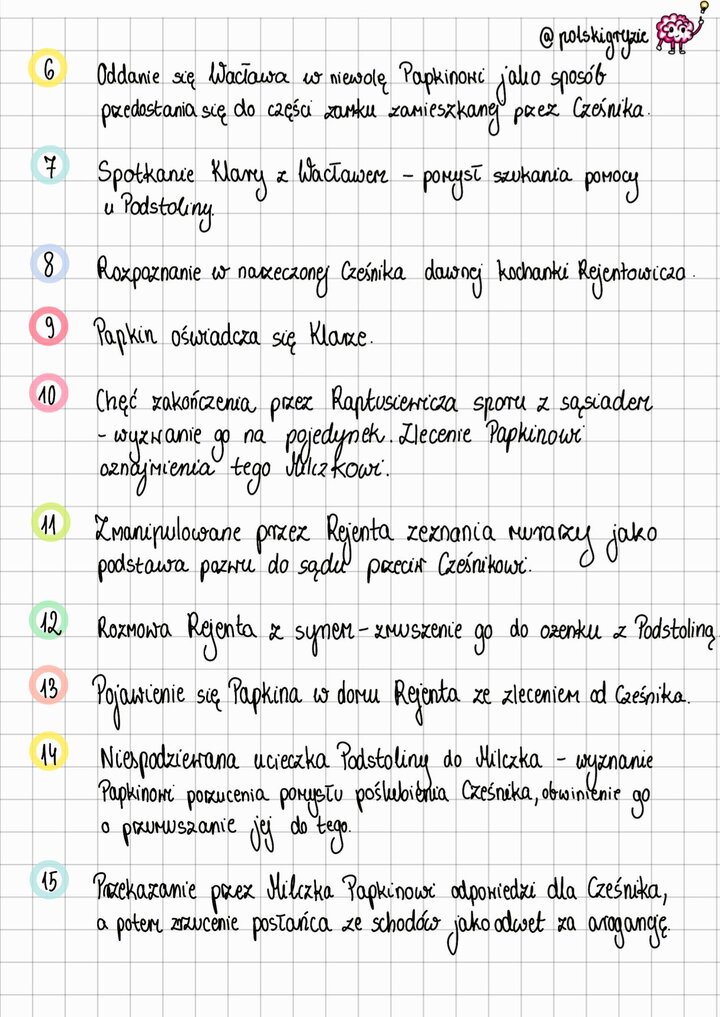 @polskigryzie
6 Oddanie się Wacława w niewolę Papkinowi jako sposób
przedostania się do części zamku zamieszkanej przez Cześnika.
7 Spotkanie Klary z Wacławem - pomysł szukania pomocy
u Podstoliny.
8 Rozpoznanie w narzeczonej Cześnika dawnej kochanki Rejentowicza.
9 Papkin oświadcza się Klarze.
10 Chęć zakończenia przez Raptusiewicza sporu z sąsiadem
- wyzwanie go na pojedynek. Zlecenie Papkinowi
oznajmienia tego Milczkowi.
11 Zmanipulowane przez Rejenta zeznania murarzy jako
podstawa pozwu do sądu przeciw Cześnikowi.
12 Rozmowa Rejenta z synem - zmuszenie go do ożenku z Podstoliną
13 Pojawienie się Papkina w domu Rejenta ze zleceniem od Cześnika.
14 Niespodziewana ucieczka Podstoliny do Milczka - wyznanie
Papkinowi porzucenia pomysłu poślubienia Cześnika, obwinienie go
o przymuszanie jej do tego.
15 Przekazanie przez Milczka Papkinowi odpowiedzi dla Cześnika,
a potem zrzucenie posłańca ze schodów jako odwet za arogancję.